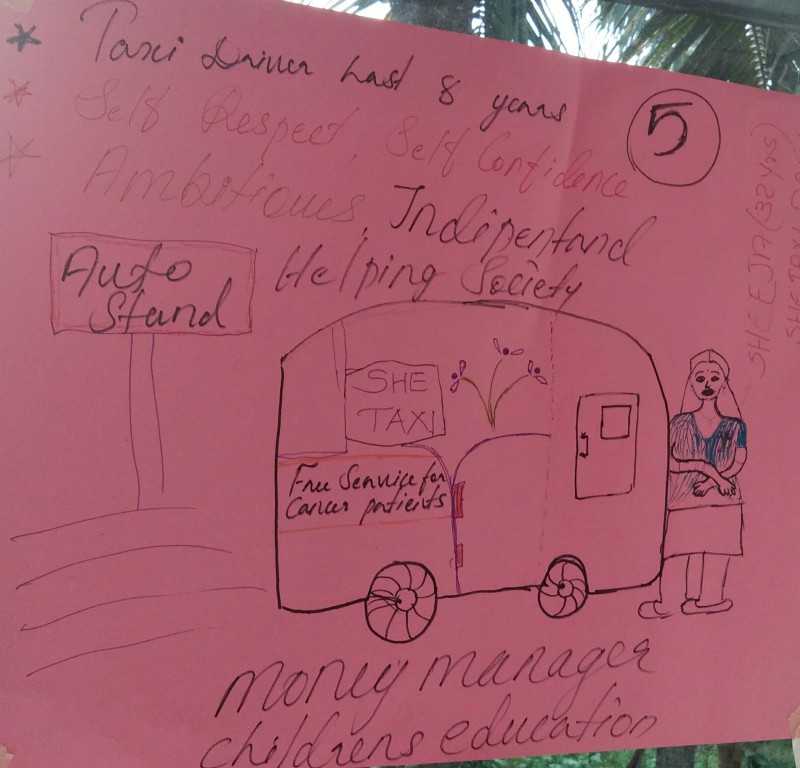 * Taxi Driver Last 8 years
* Self Respect, Self Confidence
* Ambitious, Indipentand
Helping Society
5
SHEEJA (32 yrs)
SHE TAXI
Auto
Stand
SHE
TAXI
Free Service for
Cancer patients
money manager
childrens education